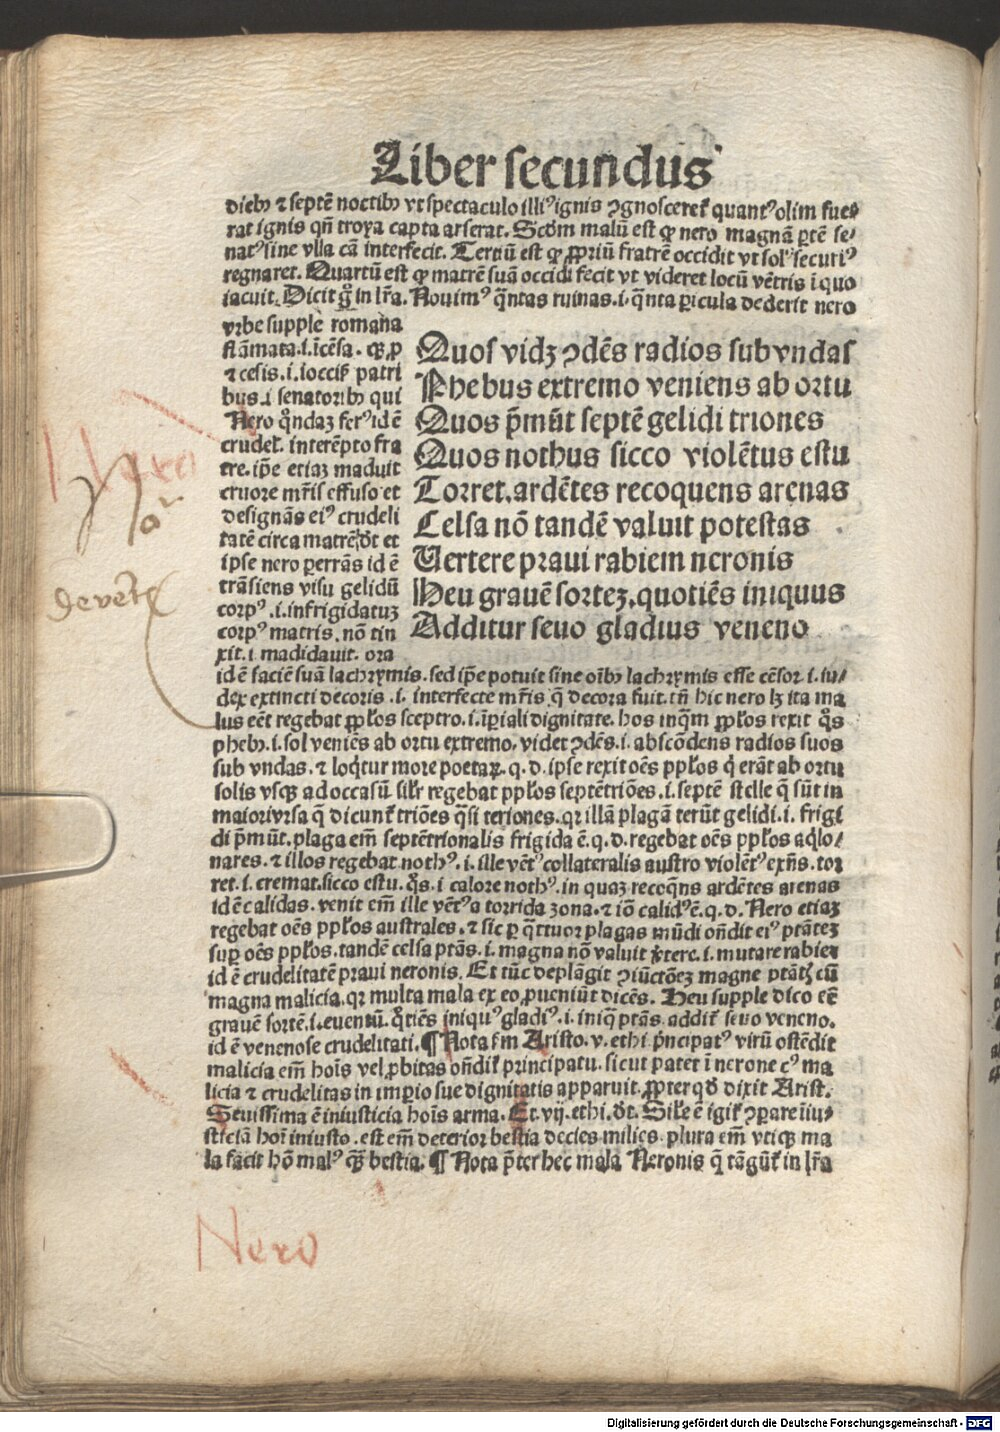 Liber secundus
dieb⁹ ⁊ septē noctib⁹ vt spectaculo illi⁹ ignis ꝯgnosceret᷑ quant⁹ olim fue⸗
rat ignis qñ troya capta arserat. Scd̄m malū est ꝙ nero magnā ꝑtē se⸗
nat⁹ sine vlla cā interfecit. Tertiū est ꝙ ꝓpriū fratrē occidit vt sol⁹ securi⁹
regnaret. Quartū est ꝙ matrē suā occidi fecit vt videret locū vētris ī quo
iacuit. Dicit g̊ in lr̄a. Nouim⁹ q̄ntas ruinas .i. q̄nta ꝑicula dederit nero
vrbe supple romana
flāmata .i. īcēsa.
⁊ cesis .i. ioccis᷑ patri
bus .i senatorib⁹ qui
Nero q̊ndaꝫ fer⁹ id ē
crudel᷑. interēpto fra
tre. ip̄e etiaꝫ maduit
cruore mr̄is effuso et
designās ei⁹ crudeli
tatē circa matrē dt̄ et
ipse nero ꝑerrās id ē
trāsiens visu gelidū
corp⁹ .i. infrigidatuꝫ
corp⁹ matris. nō tin
xit. i. madidauit. ora
Quos vidꝫ ꝯdēs radios sub vndas
Phebus extremo veniens ab ortu
Quos p̄mūt septē gelidi triones
Quos nothus sicco violētus estu
Torret. ardētes recoquens arenas
Celsa nō tandē valuit potestas
Vertere praui rabiem neronis
Heu grauē sortez. quotiēs iniquus
Additur seuo gladius veneno
id ē faciē suā lachrymis. sed ip̄e potuit sine oīb⁹ lachrymis esse cēsor .i. iu⸗
dex extincti decoris .i. interfecte mr̄is q̄ decora fuit. tn̄ hic nero lꝫ ita ma
lus eēt regebat ppl̄os sceptro .i. īꝑiali dignitate. hos inq̄m ppl̄os rexit q̊s
pheb⁹ .i. sol veniēs ab ortu extremo. videt ꝯdēs .i. abscōdens radios suos
sub vndas. ⁊ loq̇tur more poetaꝝ. q. d. ipse rexit oēs ppl̄os q̇ erāt ab ortu
solis vsqꝫ ad occasū. sil̄r regebat ppl̄os septētriōes .i. septē stelle q̄ sūt in
maiori vrsa q̄ dicunt᷑ triōes q̄si teriones. qꝛ illā plagā terūt gelidi .i. frigi
di p̄mūt. plaga em̄ septētrionalis frigida ē. q. d. regebat oēs ppl̄os aq̇lo⸗
nares. ⁊ illos regebat noth⁹ .i. ille vēt⁹ collateralis austro violēt⁹ exn̄s. tor
ret .i. cremat. sicco estu. q̊s .i calore noth⁹. in quaꝫ recoq̄ns ardētes arenas
id ē calidas. venit em̄ ille vēt⁹ a torrida zona. ⁊ iō calid⁹ ē. q. d. Nero etiaꝫ
regebat oēs ppl̄os australes. ⁊ sic ꝑ q̄ttuor plagas mūdi on̄dit ei⁹ ptātez
suꝑ oēs ppl̄os. tandē celsa ptās .i. magna nō valuit v̄tere .i. mutare rabiez
id ē crudelitatē praui neronis. Et tūc deplāgit ꝯiūctōez magne ptātꝭ cū
magna malicia. qꝛ multa mala ex eo ꝓueniūt dicēs. Heu supple dico eē
grauē sortē .i. euentū. q̊tiēs iniqu⁹ gladi⁹ .i. iniq̄ ptās. addit᷑ seuo veneno.
id ē venenose crudelitati. ¶ Nota ẜm Aristo. v. ethi. p̄ncipat⁹ virū ostēdit
malicia em̄ hoīs vel ꝓbitas on̄dit᷑ principatu. sicut patet ī nerone c⁹ ma
licia ⁊ crudelitas in imꝑio sue dignitatis apparuit. ꝓpter qd̄ dixit Arist.
Seuissima ē iniusticia hoīs arma. Et. vij. ethi. dt̄. Sil̄e ē igit᷑ ꝯparare īiu⸗
sticiā hoī iniusto. est em̄ deterior bestia decies milies. plura em̄ vtiqꝫ ma
la facit hō mal⁹ qꝫ bestia. ¶ Nota p̄ter hec mala Neronis q̄ tāgūt᷑ in lr̄a
Nero
Nero